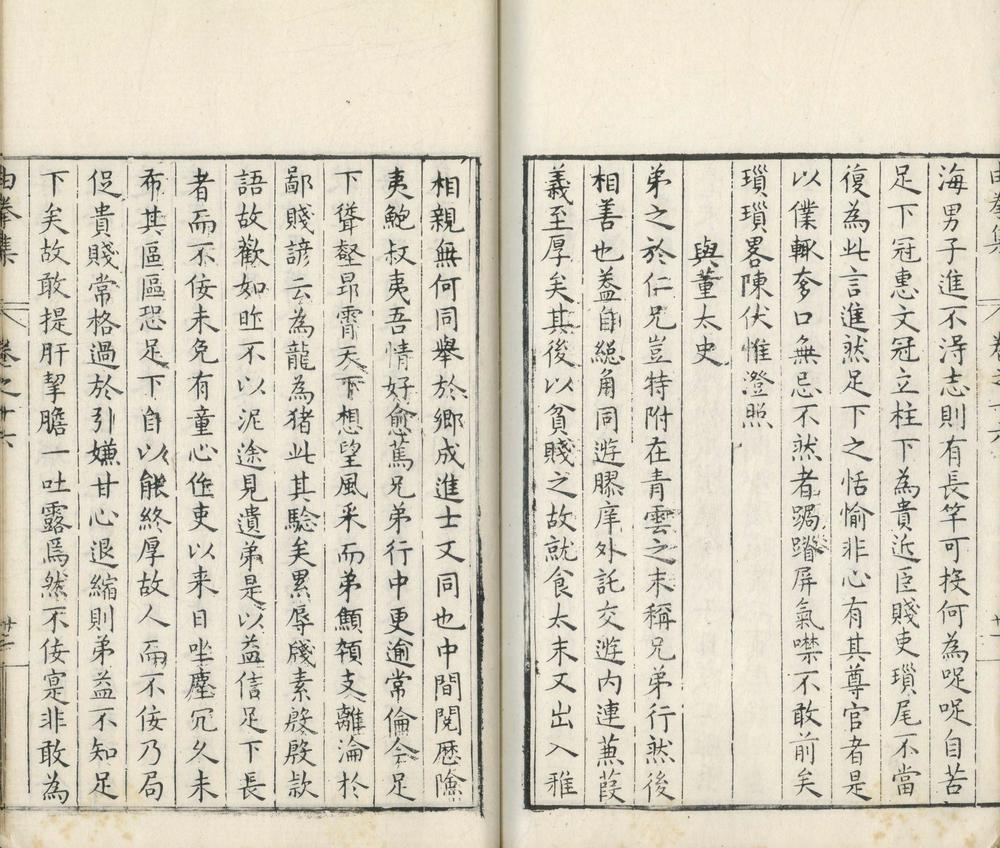 海男子進不淂志則有長竿可投何為哫哫自苦
足下冠惠文冠立柱下為貴近臣賤吏瑣尾不當
復為此言進然足下之恬愉非心有其尊官者是
以僕輙夸口無忌不然者跼蹐屏氣噤不敢前矣
瑣瑣畧陳伏惟澄照
與董太史
弟之於仁兄豈特附在青雲之末稱兄弟行然後
相善也葢自緫角同遊膠庠外託交遊內連蒹葭
義至厚矣其後以貧賤之故就食太末又出入雅
相親無何同舉於鄉成進士又同也中間閱歷險
夷鮑叔夷吾情好愈篤兄弟行中更逾常倫今足
下聳壑昻霄天下想望風采而弟顦顇支離淪於
鄙賤諺云為龍為猪此其驗矣累辱牋素殷殷款
語故歡如昨不以泥途見遺弟是以益信足下長
者而不佞未免有童心作吏以来日坐塵冗久未
布其區區恐足下自以能終厚故人而不佞乃局
促貴賤常格過於引嫌甘心退縮則弟益不知足
下矣故敢提肝挈膽一吐露焉然不佞寔非敢為
由拳集
卷之十六